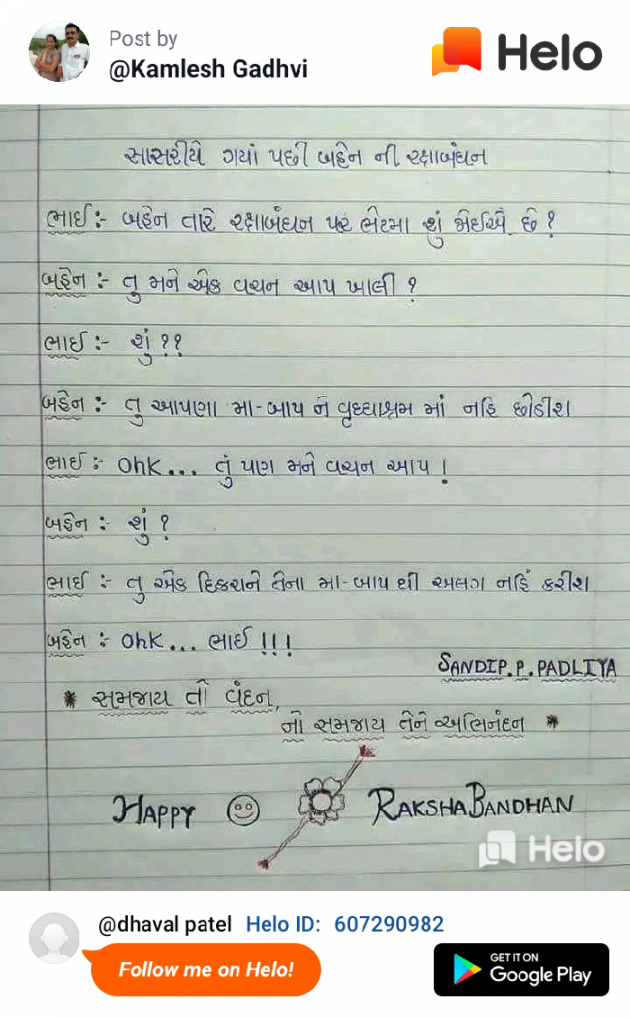 Post by
@Kamlesh Gadhvi
Helo
સાસરીયે ગયાં પછી બહેન ની રક્ષાબંધન
ભાઈ :- બહેન તારે રક્ષાબંધન પર ભેટમા શું જોઈએ છે ?
બહેન :- તુ મને એક વચન આપ ખાલી ?
ભાઈ :- શું ??
બહેન :- તુ આપણા મા-બાપ ને વૃધ્ધાશ્રમ માં નહિ છોડીશ
ભાઈ :- Ohk... તું પણ મને વચન આપ !
બહેન :- શું ?
ભાઈ :- તુ એક દિકરાને તેના મા-બાપ થી અલગ નહિં કરીશ
બહેન :- Ohk... ભાઈ !!!
SANDIP.P.PADLIYA
* સમજાય તો વંદન,
નો સમજાય તેને અભિનંદન *
HAPPY RAKSHABANDHAN
Helo
@dhaval patel Helo ID: 607290982
Follow me on Helo!
GET IT ON
Google Play